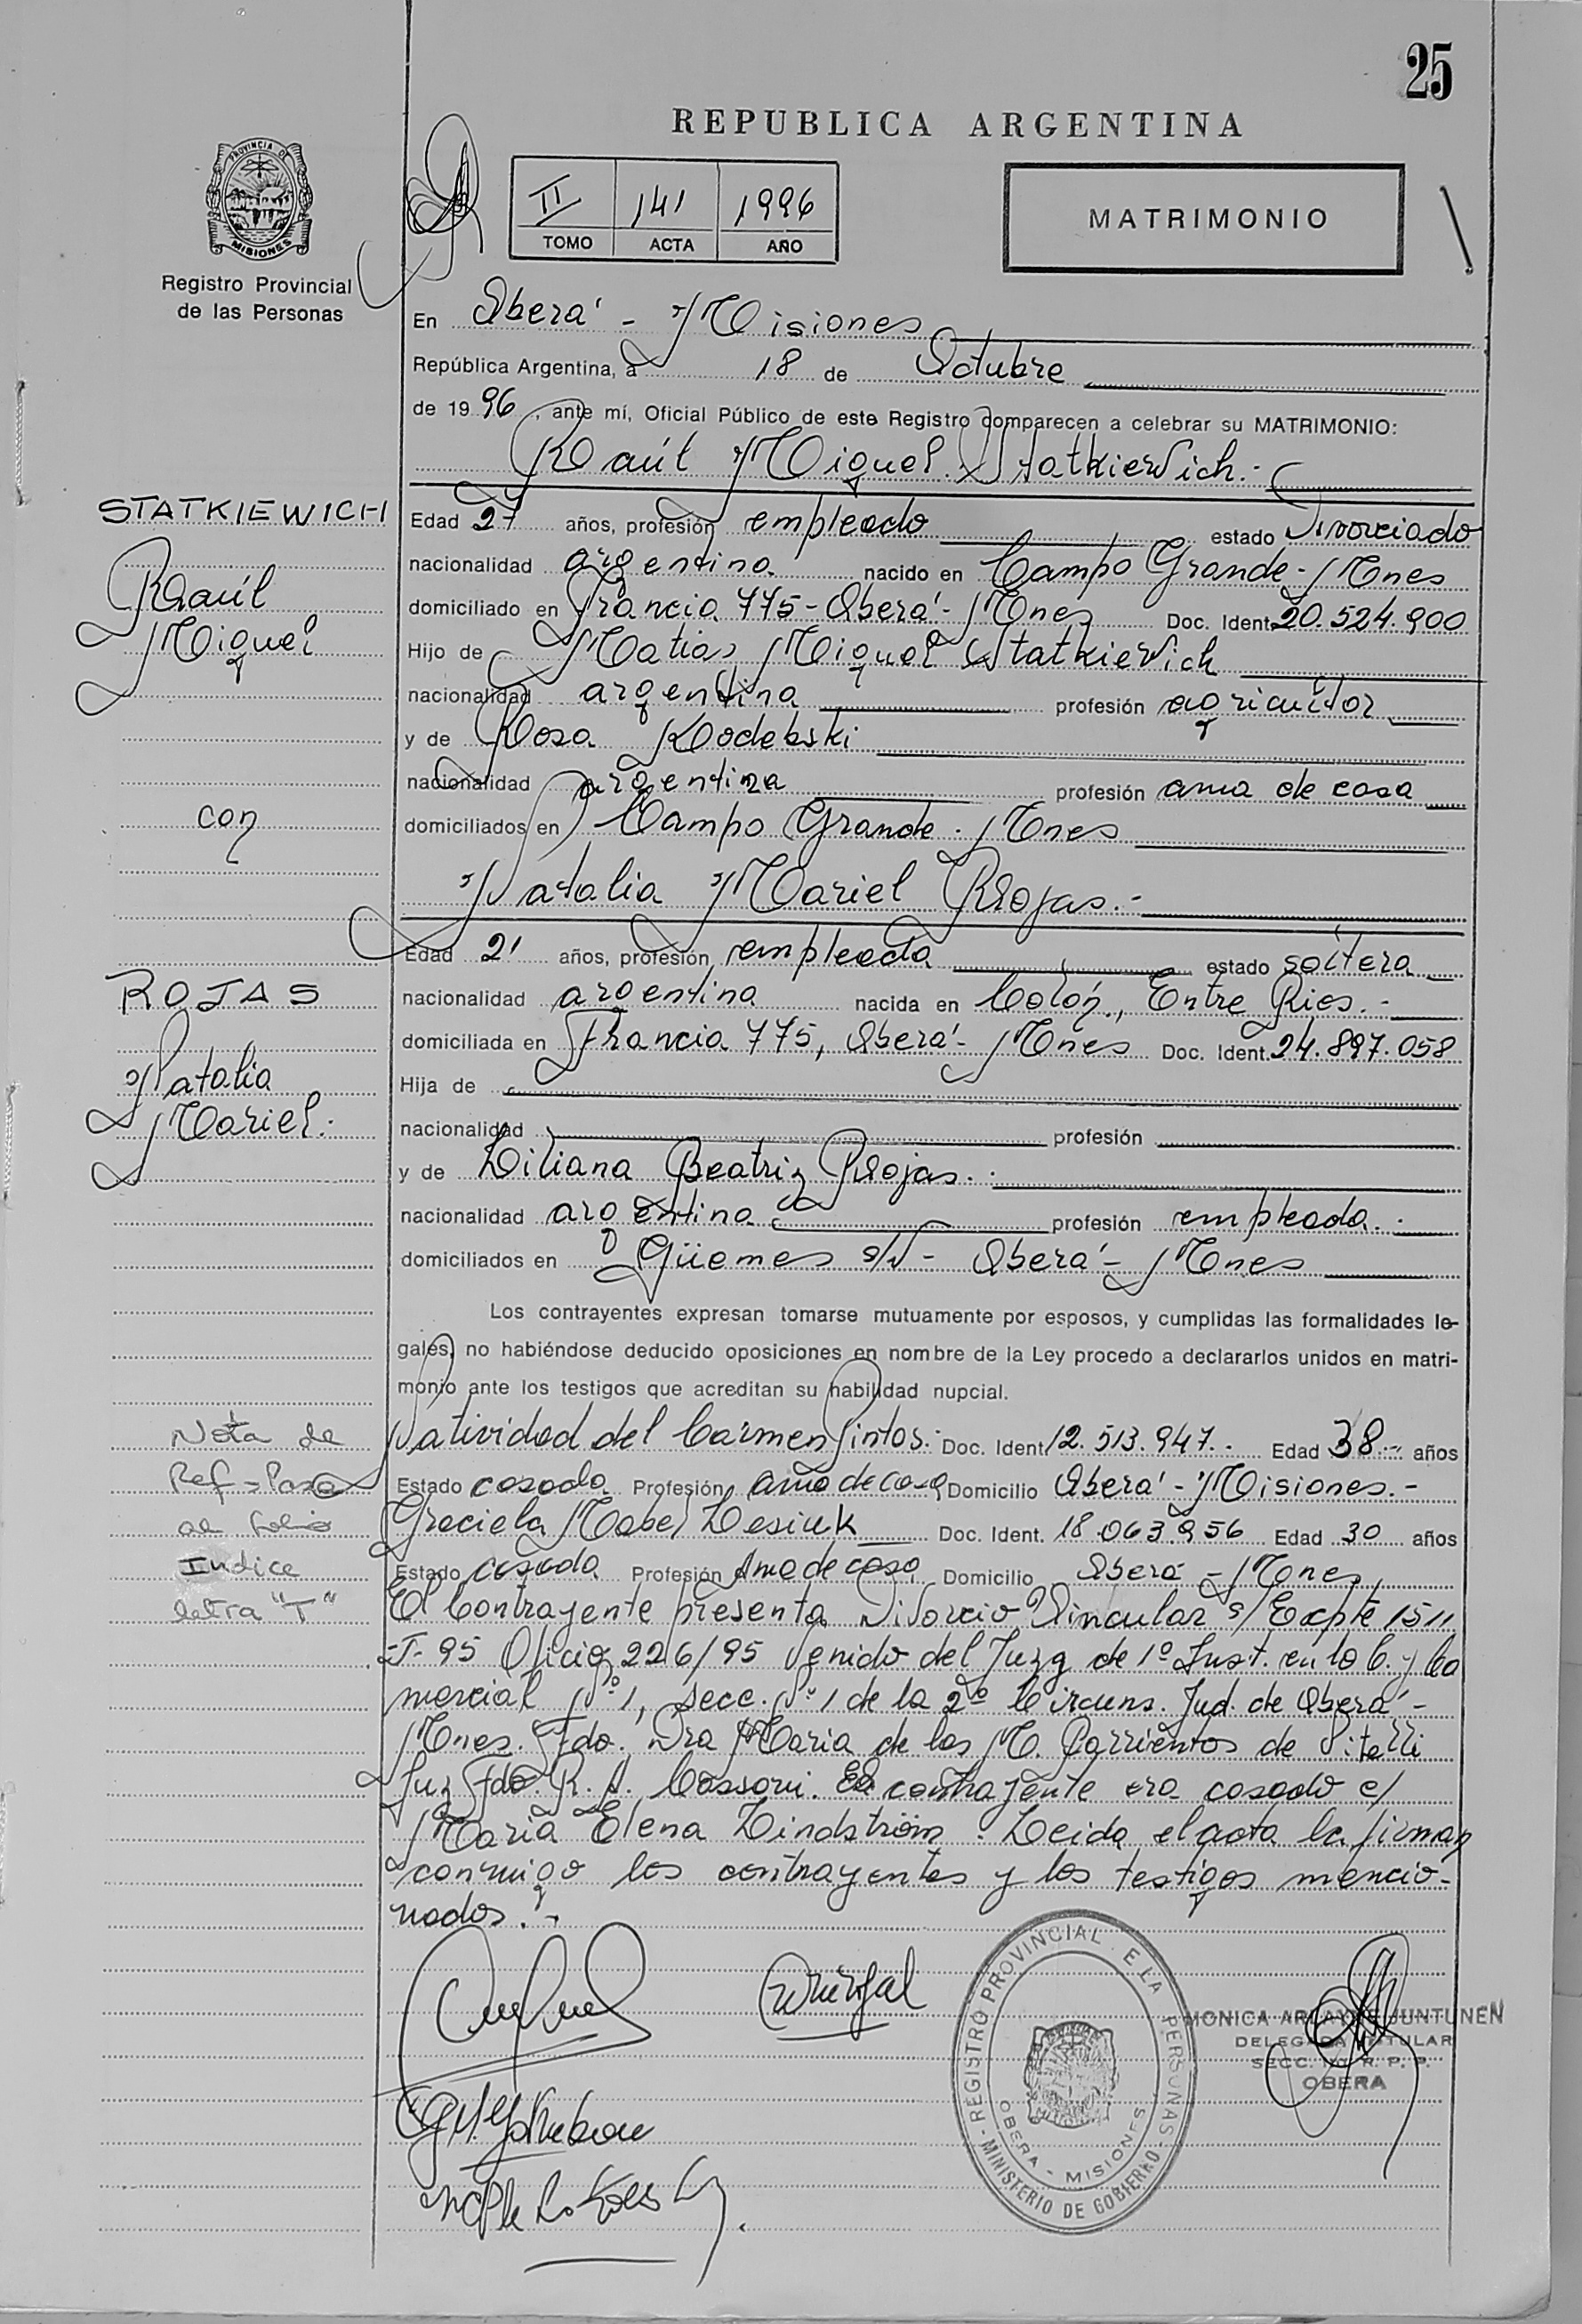 25
REPUBLICA ARGENTINA
PROVINCIA DE
MISIONES
II 141 1996
TOMO ACTA AÑO
MATRIMONIO
Registro Provincial
de las Personas
En Oberá - Misiones
República Argentina, a 18 de Octubre
de 1996, ante mí, Oficial Público de este Registro comparecen a celebrar su MATRIMONIO:
Raúl Miguel Statkiewich.-
STATKIEWICH
Raúl
Miguel
Edad 27 años, profesión empleado estado Divorciado
nacionalidad argentina nacido en Campo Grande - Mnes
domiciliado en Francia 775 - Oberá - Mnes Doc. Ident. 20.524.900
Hijo de Matias Miguel Statkiewich
nacionalidad argentina profesión agricultor
y de Rosa Kodebski
nacionalidad argentina profesión ama de casa
con
domiciliados en Campo Grande - Mnes
Natalia Mariel Rojas.-
Edad 21 años, profesión empleada estado soltera
ROJAS
Natalia
Mariel.-
nacionalidad argentina nacida en Colón, Entre Rios.-
domiciliada en Francia 775, Oberá - Mnes Doc. Ident. 24.897.058
Hija de
nacionalidad profesión
y de Liliana Beatriz Rojas.-
nacionalidad argentina profesión empleada.-
domiciliados en Güemes s/N - Oberá - Mnes
Los contrayentes expresan tomarse mutuamente por esposos, y cumplidas las formalidades le-
gales, no habiéndose deducido oposiciones en nombre de la Ley procedo a declararlos unidos en matri-
monio ante los testigos que acreditan su habilidad nupcial.
Nota de
Ref = Pasa
al folio
Indice
letra "T"
Natividad del Carmen Pintos.- Doc. Ident. 12.513.947.- Edad 38 años
Estado casada Profesión ama de casa Domicilio Oberá - Misiones.-
Graciela Mabel Lesiuk Doc. Ident. 18.063.956 Edad 30 años
Estado casada Profesión Ama de casa Domicilio Oberá - Mnes
El Contrayente presenta Divorcio Vincular s/Expte 1511
-T- 95 Oficio 226/95 venido del Juzg de 1º Inst. en lo C. y Co
mercial Nº 1, Secc. Nº 1 de la 2º Circuns. Jud. de Oberá -
Mnes. Fdo. Dra Maria de las M. Barrientos de Pitelli
Juz Fdo. R. A. Cassoni. El contrayente era casado c/
Maria Elena Lindström. Leida el acta la firman
conmigo los contrayentes y los testigos mencio-
nados.-
REGISTRO PROVINCIAL E LA PERSONAS
MINISTERIO DE GOBIERNO
OBERA - MISIONES
MONICA JUNTUNEN
DELEGADA TITULAR
SECC. R. P. P.
OBERA